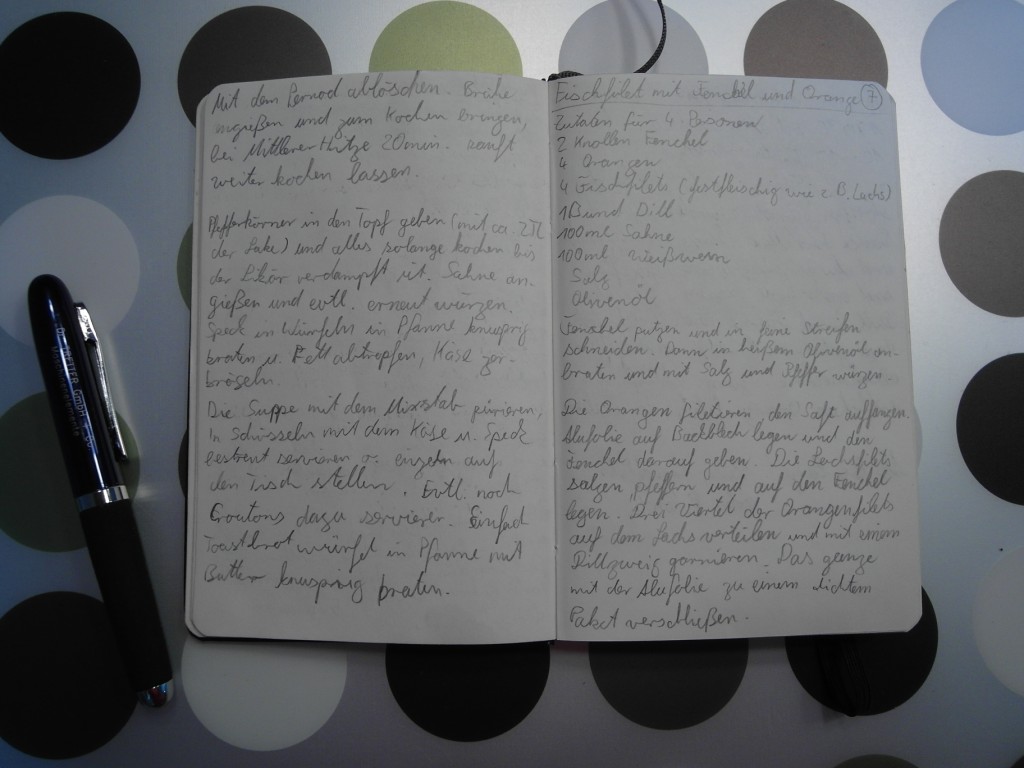 Mit dem Pernod ablöschen. Brühe
angießen und zum Kochen bringen,
bei Mittlerer Hitze 20min. sanft
weiter kochen lassen.
Pfefferkörner in den Topf geben (mit ca. 2TL
der Lake) und alles solange kochen bis
der Likör verdampft ist. Sahne an-
gießen und evtl. erneut würzen.
Speck in Würfeln in Pfanne knusprig
braten u. Fett abtropfen, Käse zer-
bröseln.
Die Suppe mit dem Mixstab pürieren,
In Schüsseln mit dem Käse u. Speck
bestreut servieren o. einzeln auf
den Tisch stellen. Evtl. noch
Croutons dazu servieren. Einfach
Toastbrotwürfel in Pfanne mit
Butter knusprig braten.
Fischfilet mit Fenchel und Orange 7
Zutaten für 4 Personen
2 Knollen Fenchel
4 Orangen
4 Fischfilets (festfleischig wie z.B. Lachs)
1Bund Dill
100ml Sahne
100ml Weißwein
Salz
Olivenöl
Fenchel putzen und in feine Streifen
schneiden. Dann in heißem Olivenöl an-
braten und mit Salz und Pfeffer würzen.
Die Orangen filetieren, den Saft auffangen.
Alufolie auf Backblech legen und den
Fenchel darauf geben. Die Lachsfilets
salzen, pfeffern und auf den Fenchel
legen. Drei Viertel der Orangenfilets
auf dem Lachs verteilen und mit einem
Dillzweig garnieren. Das ganze
mit der Alufolie zu einem dichtem
Paket verschließen.